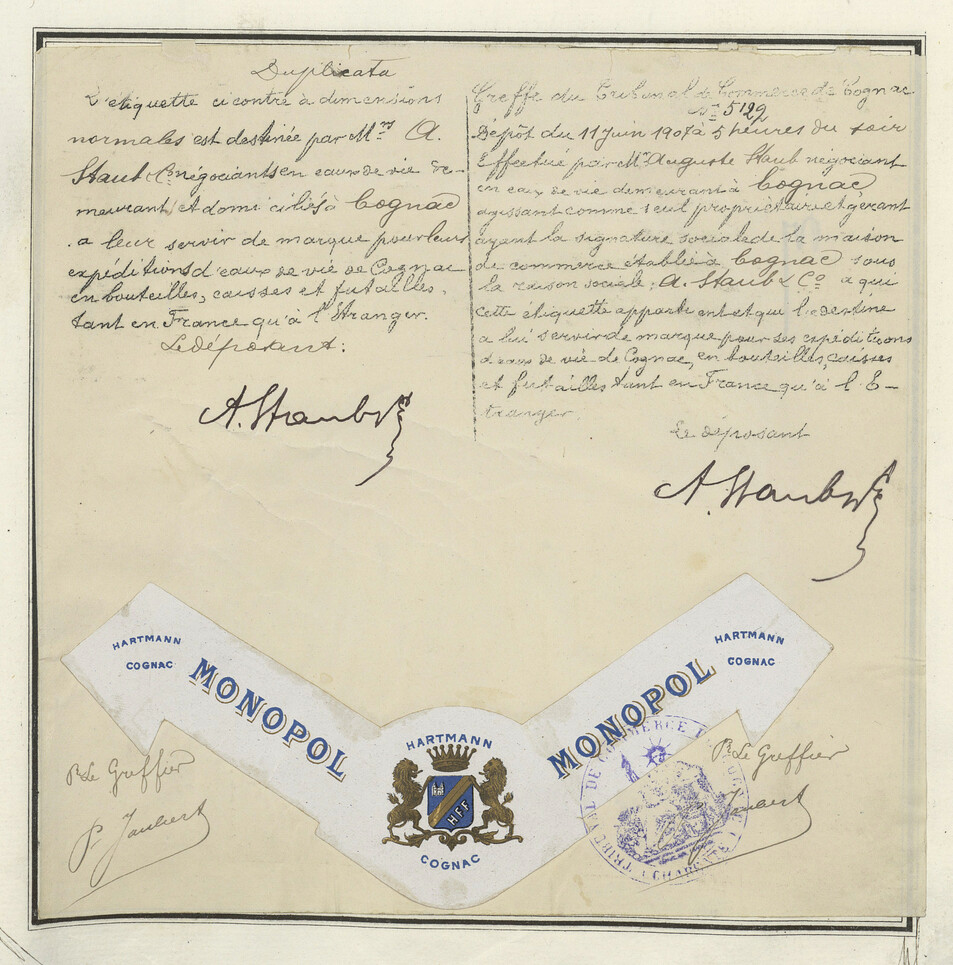 Duplicata
L'etiquette ci contre à dimensions
normales est destinée par Mrs A.
Staub & Co négociants en eaux de vie de-
meurant et domiciliés à Cognac
a leur servir de marque pour leurs
expéditions d'eaux de vie de Cognac
en bouteilles, caisses et futailles,
tant en France qu'à l'Etranger.
Le déposant:
A. Staub & Co
Greffe du Tribunal de Commerce de Cognac
No 5122
Dépôt du 11 Juin 1908 à 5 heures du soir
Effectué par Mr Auguste Staub négociant
en eaux de vie demeurant à Cognac
agissant comme seul propriétaire et gérant
ayant la signature sociale de la maison
de commerce établie à Cognac sous
la raison sociale: A. Staub & Co a qui
cette étiquette appartient et qui la destine
a lui servir de marque pour ses expéditions
d'eaux de vie de Cognac, en bouteilles, caisses
et futailles tant en France qu'à l'E-
tranger.
Le déposant
A. Staub & Co
HARTMANN
COGNAC
MONOPOL
HARTMANN
HFF
COGNAC
MONOPOL
HARTMANN
COGNAC
Pr Le Greffier
P. Jaubert
Pr Le Greffier
Jaubert
TRIBUNAL DE COMMERCE DE COGNAC (CHARENTE)